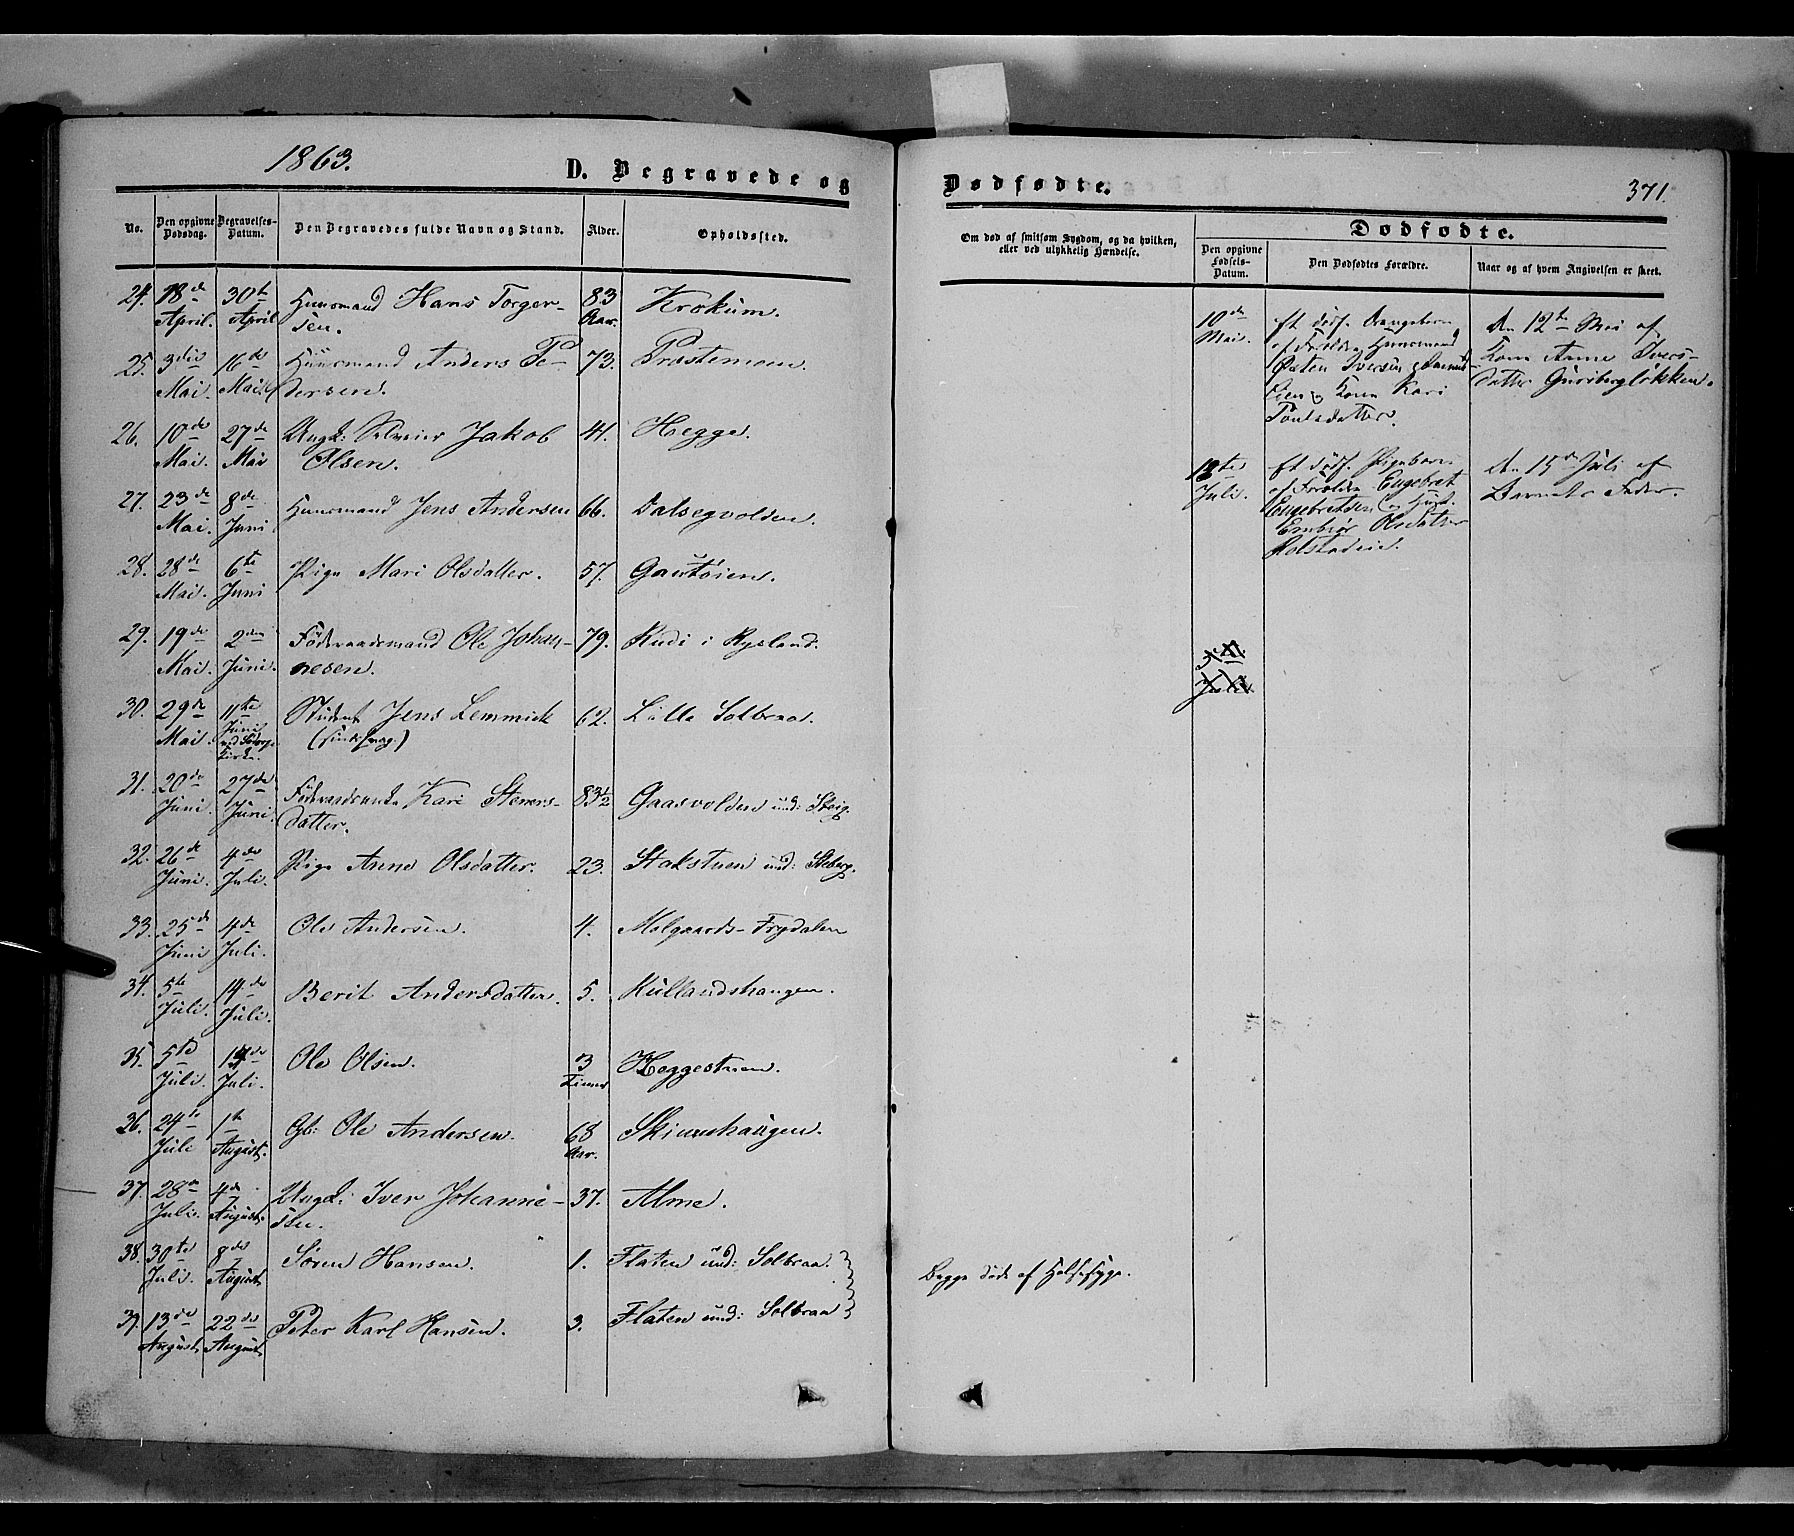 1863.
D. Begravede og
No.
Den opgivne Dødsdag.
Begravelses-Datum.
Den Begravedes fulde Navn og Stand.
Alder.
Opholdssted.
24. 18de April. 30te April Huusmand Hans Torger- 83 Aar. Krokum.
sen.
25. 3die Mai. 16de Mai. Huusmand Anders Pe- 73. Præstemoen.
dersen.
26. 10de Mai. 27de Mai Ungk: Jakob 41. Hegge.
Olsen.
27. 23de Mai. 8de Juni Huusmand Jens Andersen 66. Dalsegvolden.
28. 28de Mai. 6te Juni Pige Mari Olsdatter. 57. Gautøien.
29. 19de Mai. 2den Juni. Føderaadsmand Ole Johan- 79. Rudi i Rysland.
nesen.
30. 29de Mai. 11te Juni ved Sødorp Kirke. Student Jens Lemmick 62. Lille Solbraa.
31. 20de Juni. 27de Juni. Føderaadsenke Kari Steners- 83½ Gaasvolden und: Steig.
datter.
32. 26de Juni. 4de Juli. Pige Anne Olsdatter. 23. Stakstuen und: Steberg.
33. 25de Juni 4de Juli. Ole Andersen. 4. Molgaards-Frydalen
34. 5te Juli. 14de Juli. Berit Andersdatter. 5. Kullandshaugen.
35. 5te Juli. Juli. Ole Olsen. 3 Timer Heggestuen.
36. 24de Juli 1te August. Gb: Ole Andersen. 68 Aar. Skinnhaugen.
37. 28de Juli. 4de August. Ungk: Iver Johanne- 37. Alme.
sen.
38. 30te Juli. 8de August Søren Hansen. 1. Flaten und: Solbraa.
39. 13de August 22de August Peter Karl Hansen. 3. Flaten und: Solbraa
Dødfødte.
371.
Om død af smitsom Sygdom, og da hvilken,
eller ved ulykkelig Hændelse.
Dødfødte.
Den opgivne Fødsels-Datum.
Den Dødfødtes Forældre.
Naar og af hvem Angivelsen er skeet.
10de Mai.
Et dødf. Drengebarn
af Forældre Huusmand
Iversen
og Kone Kari
Poulsdatter.
Den 12te Mai af
Kone Anne Ivers-
datter Guribergløkken.
Juli.
Et dødf. Pigebarn
af Forældre Engebret
Engebretsen og Hust.
Embjør Olsdatter
Rolstadeie.
Den 15de Juli af
Barnets Fader.
Begge døde af Halssyge.